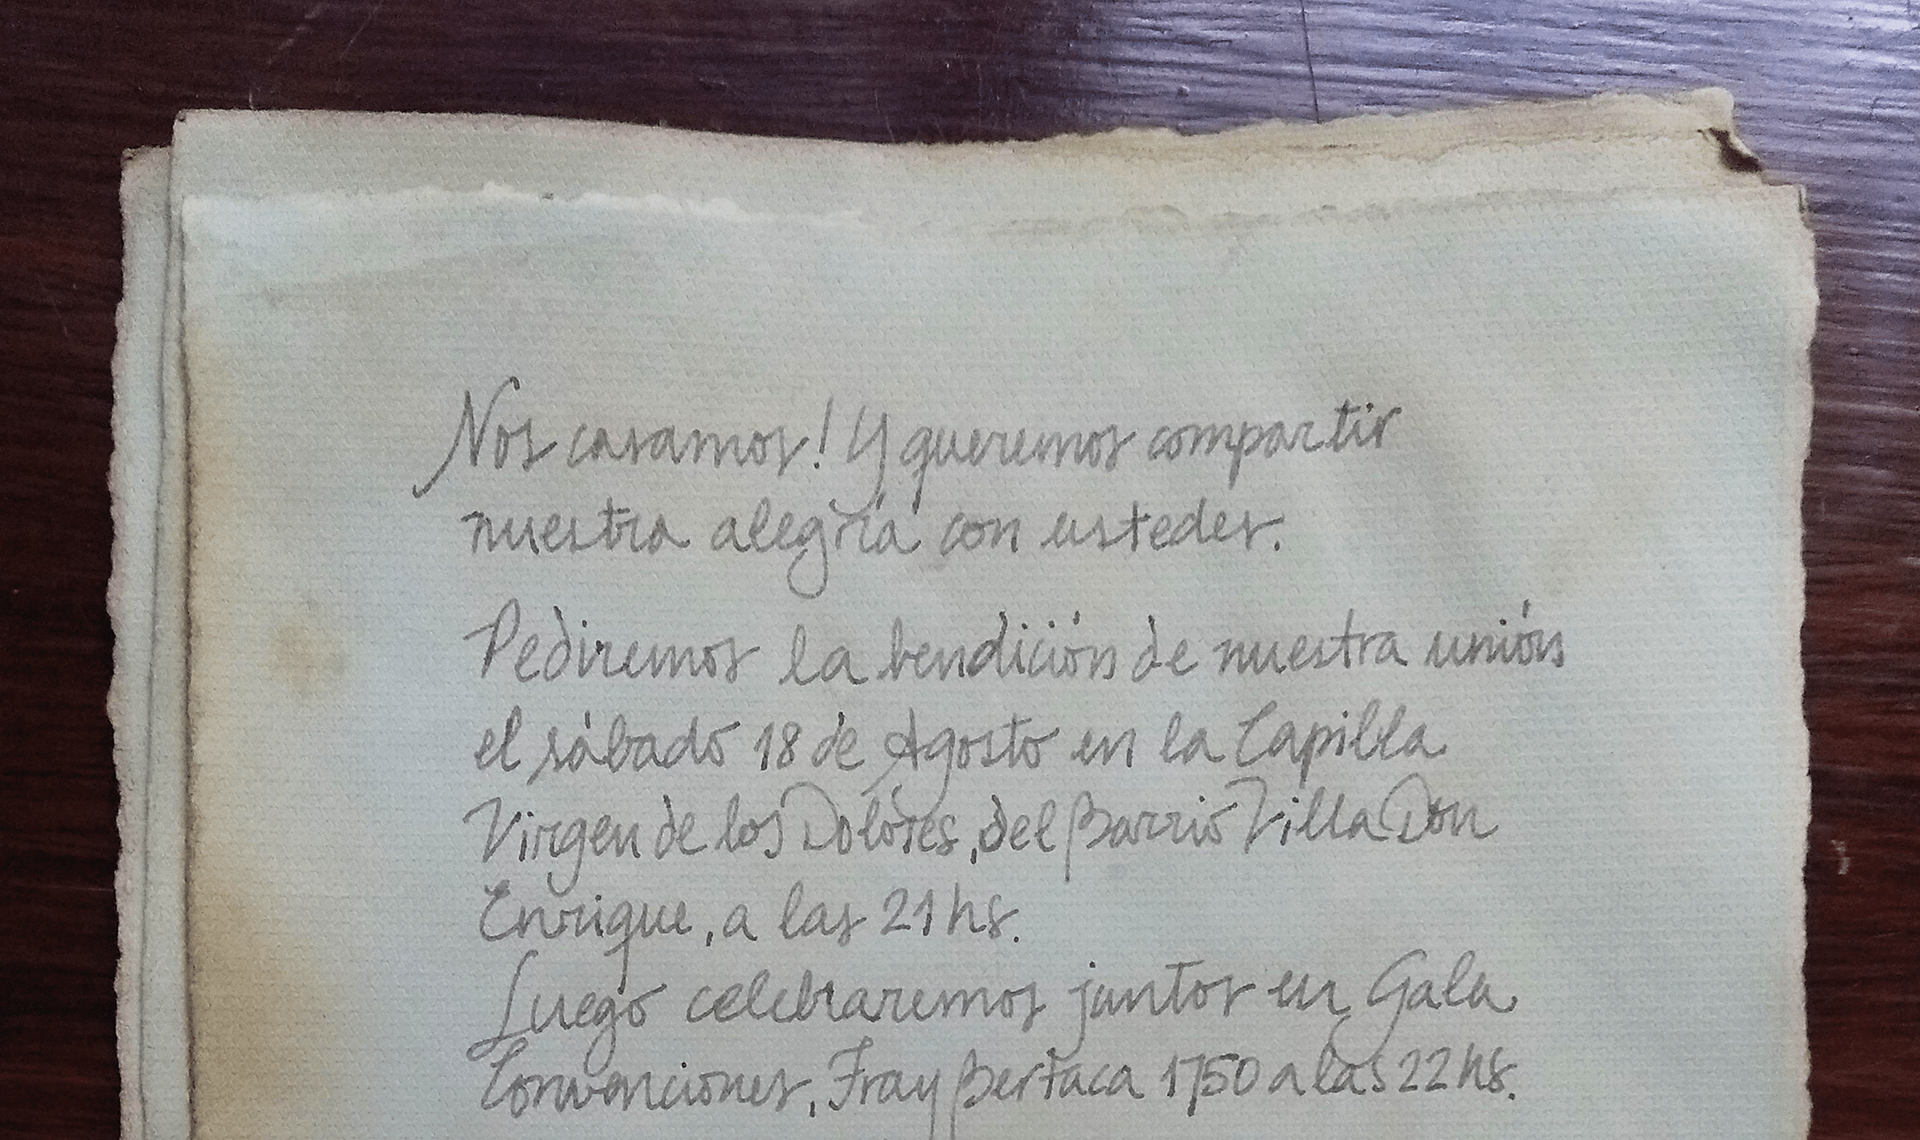 Nos casamos! Y queremos compartir
nuestra alegría con ustedes.
Pediremos la bendición de nuestra unión
el sábado 18 de Agosto en la Capilla
Virgen de los Dolores, del Barrio Villa Don
Enrique, a las 21 hs.
Luego celebraremos juntos en Gala
Convenciones, Fray Bertaca 1750 a las 22 hs.